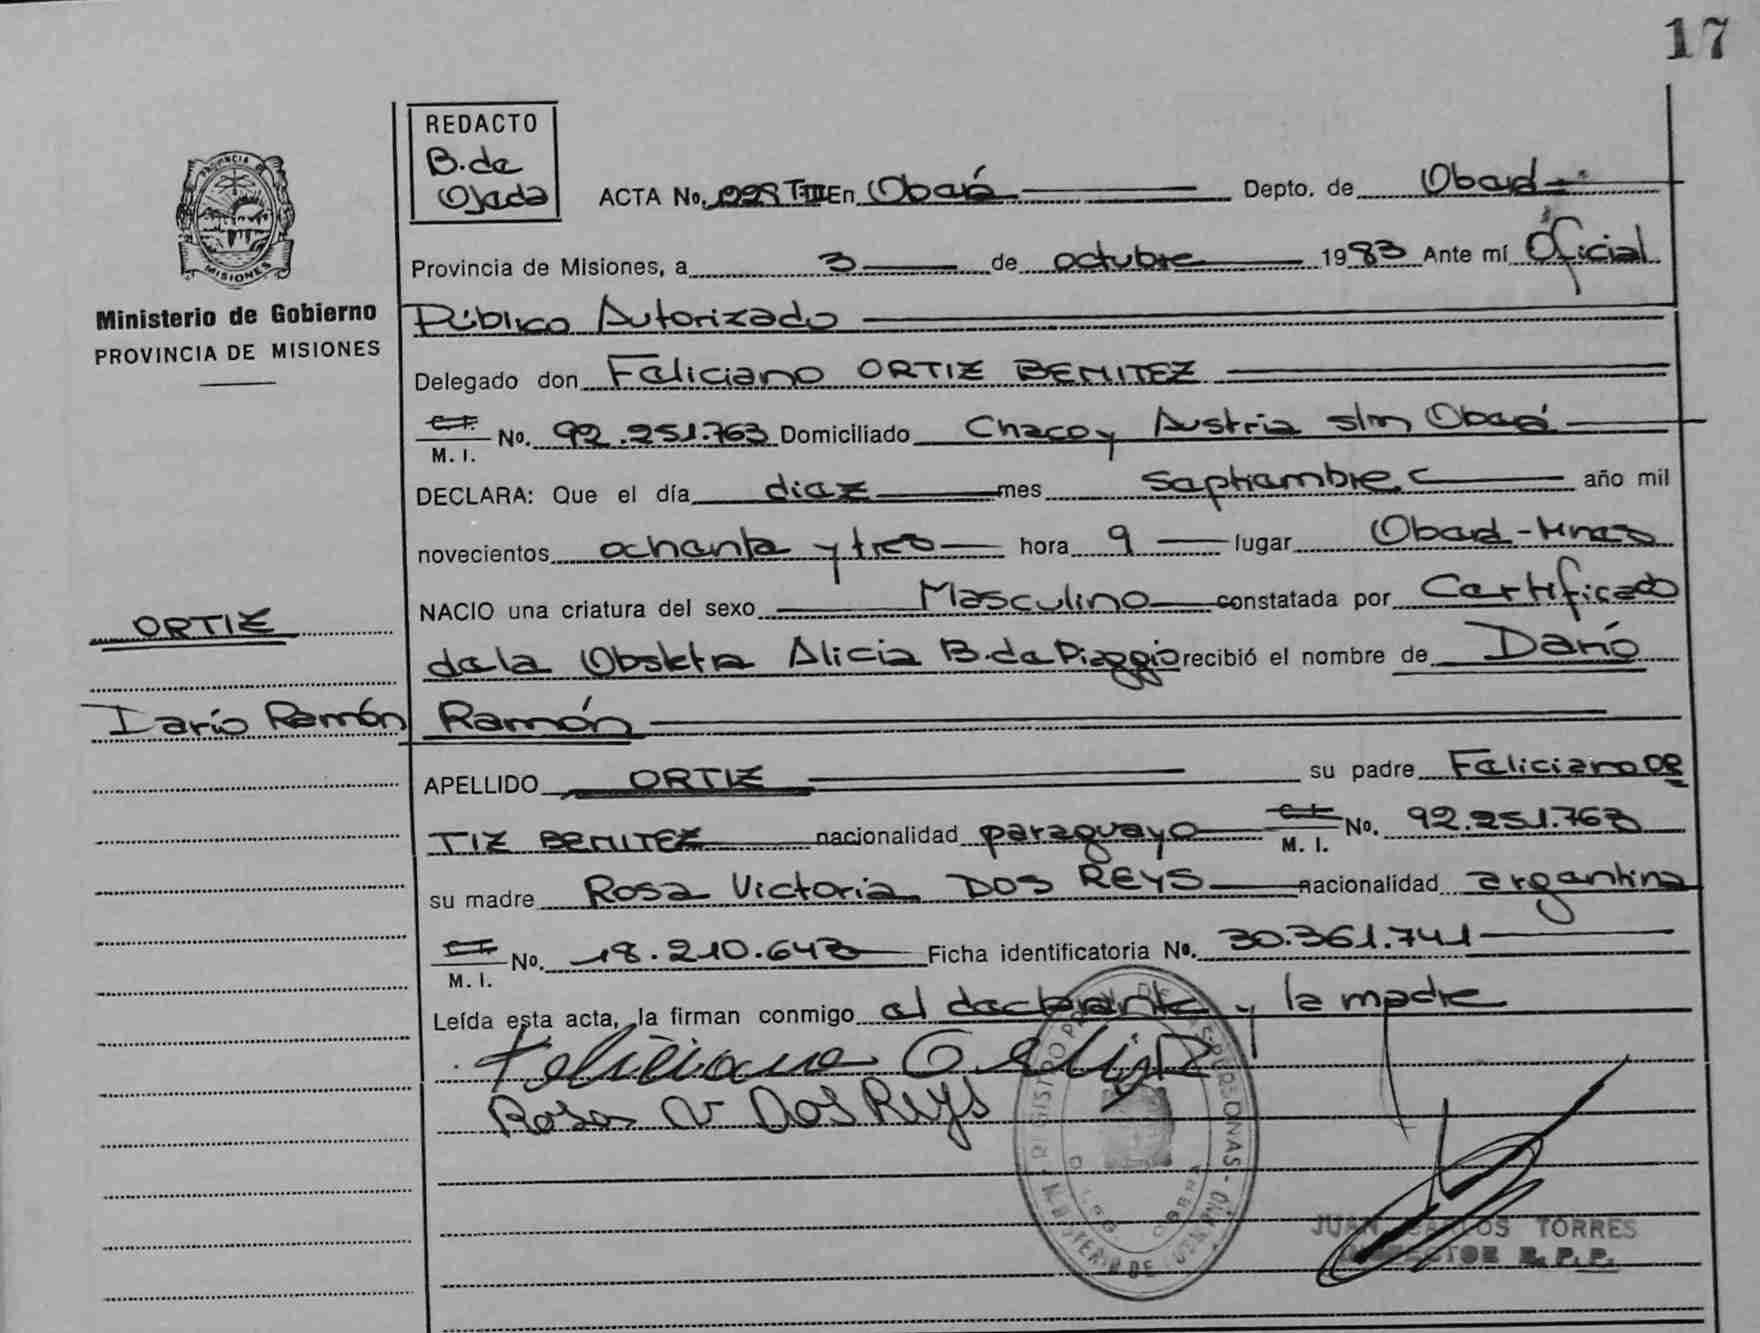 17
REDACTO
B. de
Ojeda
ACTA No. T-III En Oberá Depto. de Oberá
Provincia de Misiones, a 3 de octubre 1983 Ante mí Oficial
Público Autorizado
Delegado don Feliciano ORTIZ BENITEZ
C.I.
M. I. No. 92.251.763 Domiciliado Chaco y Austria s/n Oberá
DECLARA: Que el día diez mes septiembre año mil
novecientos ochenta y tres hora 9 lugar Oberá-Mnes
NACIO una criatura del sexo Masculino constatada por Certificado
de la Obstetra Alicia B. de Piaggio recibió el nombre de Darío
Ramón
APELLIDO ORTIZ su padre Feliciano OR
TIZ BENITEZ nacionalidad paraguayo C.I.
M. I. No. 92.251.763
su madre Rosa Victoria DOS REYS nacionalidad argentina
C.I.
M. I. No. 18.210.643 Ficha identificatoria No. 30.361.741
Leída esta acta, la firman conmigo el declarante y la madre
Feliciano Ortiz
Rosa V DOS Reys
JUAN CARLOS TORRES
R. P. P.
PROVINCIA DE
MISIONES
Ministerio de Gobierno
PROVINCIA DE MISIONES
ORTIZ
Darío Ramón